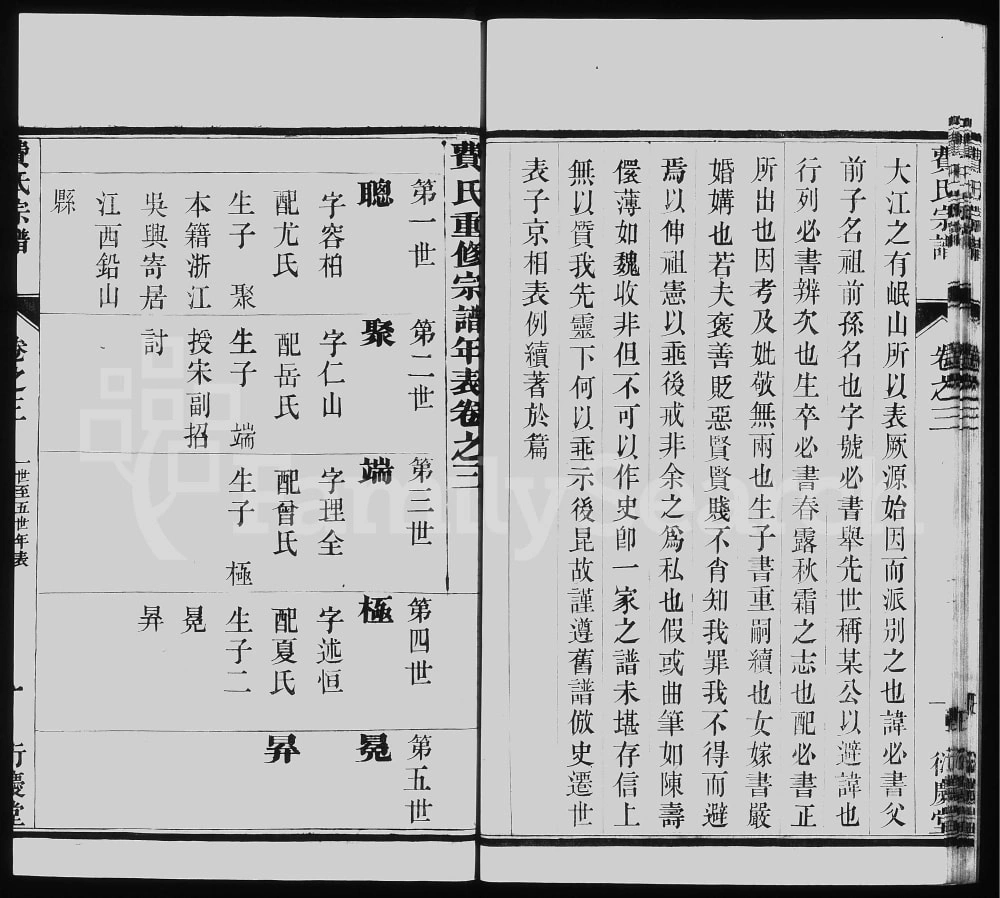 費氏宗譜
卷之三
一
衍慶堂
大江之有岷山所以表厥源始因而派別之也諱必書父
前子名祖前孫名也字號必書舉先世稱某公以避諱也
行列必書辨次也生卒必書春露秋霜之志也配必書正
所出也因考及妣敬無兩也生子書重嗣續也女嫁書嚴
婚媾也若夫褒善貶惡賢賢賤不肖知我罪我不得而避
焉以伸祖憲以垂後戒非余之爲私也假或曲筆如陳壽
儇薄如魏收非但不可以作史卽一家之譜未堪存信上
無以質我先靈下何以垂示後昆故謹遵舊譜倣史遷世
表子京相表例續著於篇
費氏重修宗譜年表卷之三
第一世
聰
字容柏
配尤氏
生子 聚
本籍浙江
吳興寄居
江西鉛山
縣
第二世
聚
字仁山
配岳氏
生子 端
授宋副招
討
第三世
端
字理全
配曾氏
生子 極
第四世
極
字述恒
配夏氏
生子二
冕
昇
第五世
冕
昇
費氏宗譜
卷之三
一世至五世年表
衍慶堂
FamilySearch